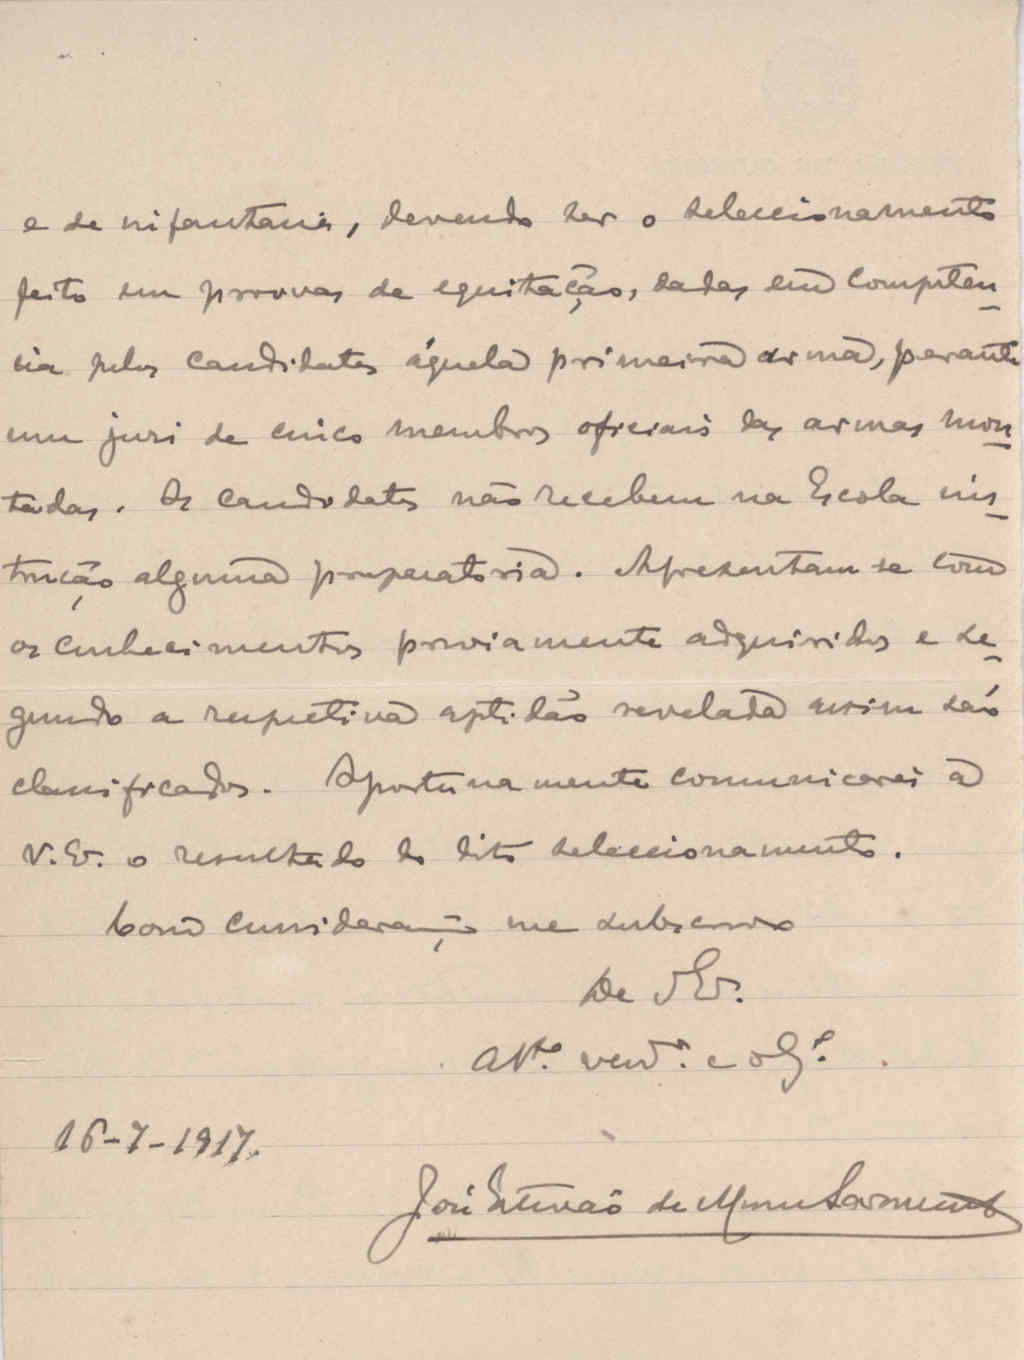 e de infantaria, devendo ser o seleccionamento
feito em provas de equitação, dadas em competen-
cia pelos candidatos áquela primeira arma, perante
um juri de cinco membros oficiais das armas mon-
tadas. Os candidatos não recebem na Escola ins-
trução alguma preparatoria. Apresentam-se com
os conhecimentos previamente adquiridos e se-
gundo a respetiva aptidão revelada assim são
classificados. Oportunamente comunicarei a
V. Ex. o resultado do dito seleccionamento.
Com consideração me subscrevo
De V. Ex.
Att.º vend.or e obg.º
16-7-1917.
José Estevão de Moraes Sarmento